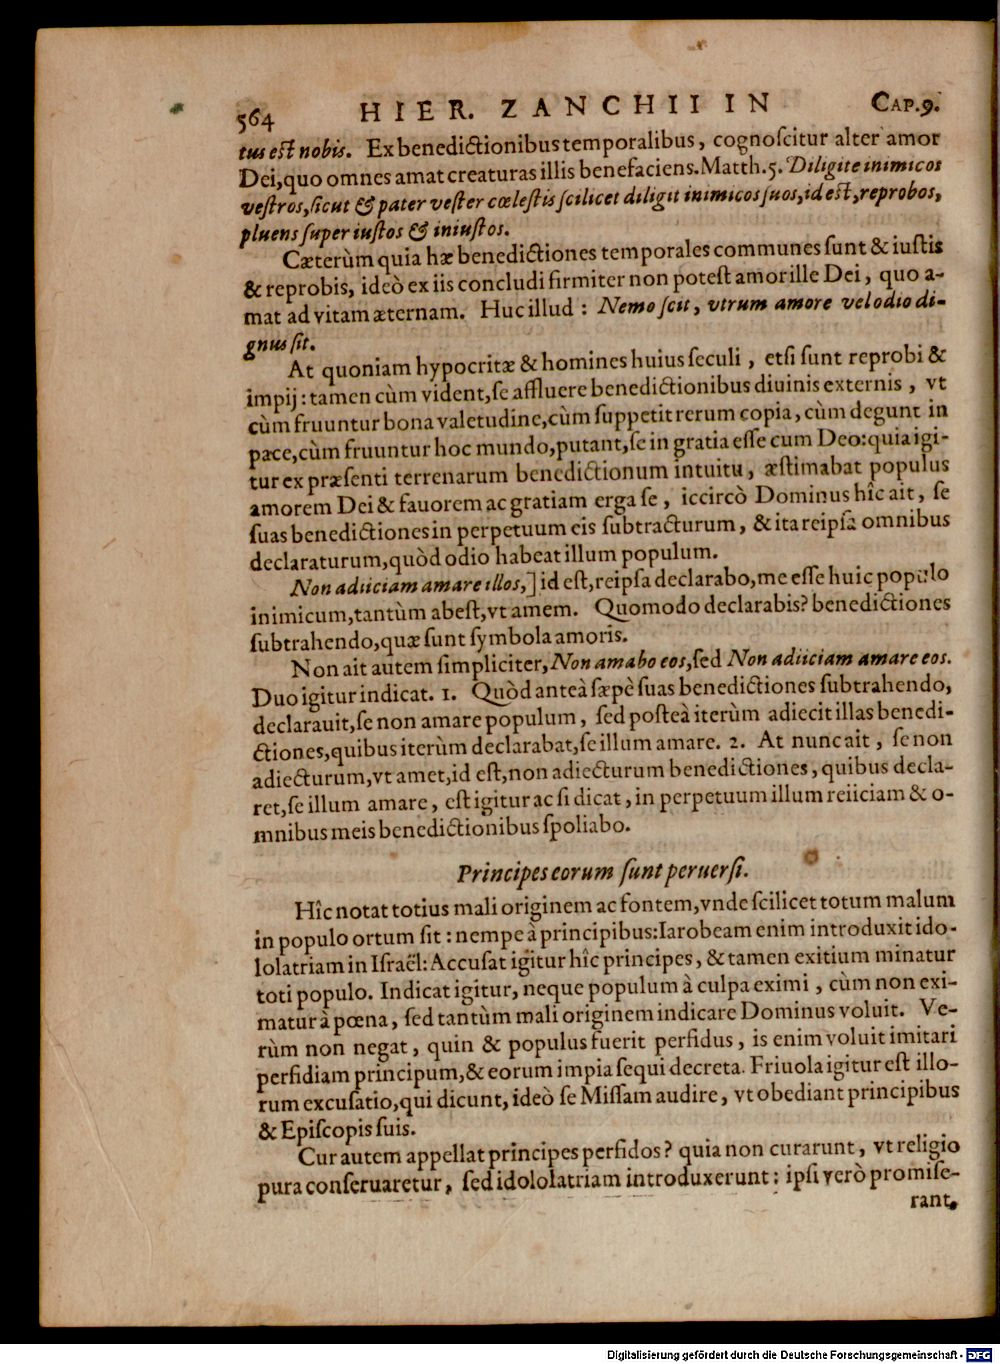 564 HIER. ZANCHII IN CAP.9.
tus est nobis. Ex benedictionibus temporalibus, cognoſcitur alter amor
Dei,quo omnes amat creaturas illis benefaciens.Matth.5. Diligite inimicos
veſtros,ſicut & pater veſter cœleſtis ſcilicet diligit inimicos ſuos,id eſt,reprobos,
pluens ſuper iuſtos & iniuſtos.
Cæterùm quia hæ benedictiones temporales communes ſunt & iuſtis
& reprobis, ideò ex iis concludi firmiter non poteſt amor ille Dei, quo a-
mat ad vitam æternam. Huc illud : Nemo ſcit, vtrum amore vel odio di-
gnus ſit.
At quoniam hypocritæ & homines huius ſeculi, etſi ſunt reprobi &
impij: tamen cùm vident,ſe affluere benedictionibus diuinis externis, vt
cùm fruuntur bona valetudine,cùm ſuppetit rerum copia, cùm degunt in
pace,cùm fruuntur hoc mundo,putant,ſe in gratia eſſe cum Deo:quia igi-
tur ex præſenti terrenarum benedictionum intuitu, æſtimabat populus
amorem Dei & fauorem ac gratiam erga ſe, iccircò Dominus hîc ait, ſe
ſuas benedictiones in perpetuum eis ſubtracturum, & ita reipſa omnibus
declaraturum,quòd odio habeat illum populum.
Non adiiciam amare illos,] id eſt,reipſa declarabo,me eſſe huic populo
inimicum,tantùm abeſt,vt amem. Quomodo declarabis? benedictiones
ſubtrahendo,quæ ſunt ſymbola amoris.
Non ait autem ſimpliciter,Non amabo eos,ſed Non adiiciam amare eos.
Duo igitur indicat. 1. Quòd anteà ſæpè ſuas benedictiones ſubtrahendo,
declarauit,ſe non amare populum, ſed poſteà iterùm adiecit illas benedi-
ctiones,quibus iterùm declarabat,ſe illum amare. 2. At nunc ait, ſe non
adiecturum,vt amet,id eſt,non adiecturum benedictiones, quibus decla-
ret,ſe illum amare, eſt igitur ac ſi dicat, in perpetuum illum reiiciam & o-
mnibus meis benedictionibus ſpoliabo.
Principes eorum ſunt peruerſi.
Hîc notat totius mali originem ac fontem,vnde ſcilicet totum malum
in populo ortum ſit: nempe à principibus:Iarobeam enim introduxit ido-
lolatriam in Iſraël: Accuſat igitur hîc principes, & tamen exitium minatur
toti populo. Indicat igitur, neque populum à culpa eximi, cùm non exi-
matur à pœna, ſed tantùm mali originem indicare Dominus voluit. Ve-
rùm non negat, quin & populus fuerit perfidus, is enim voluit imitari
perfidiam principum,& eorum impia ſequi decreta. Friuola igitur eſt illo-
rum excuſatio,qui dicunt, ideò ſe Miſſam audire, vt obediant principibus
& Epiſcopis ſuis.
Cur autem appellat principes perfidos? quia non curarunt, vt religio
pura conſeruaretur, ſed idololatriam introduxerunt: ipſi verò promiſe-
rant,
Digitalisierung gefördert durch die Deutsche Forschungsgemeinschaft - DFG